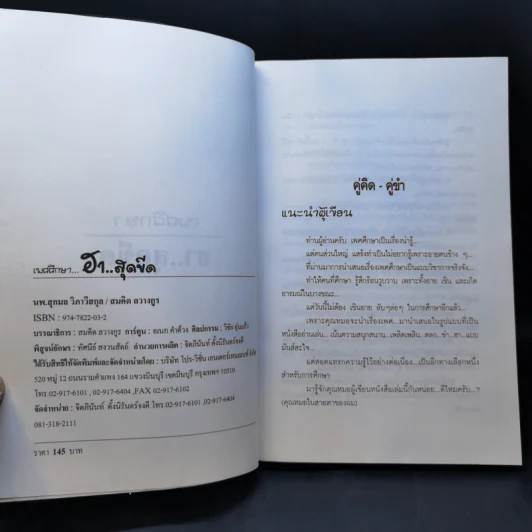 เพศศึกษา... ฮา..สุดขีด
นพ.สุกมล วิภาวีพลกุล / สมคิด ลวางกูร
ISBN : 974-7822-03-2
บรรณาธิการ : สมคิด ลวางกูร การ์ตูน : อเนก คำด้วง ศิลปกรรม : วิชัย
พิสูจน์อักษร : ทัศนีย์ สงวนสัตย์ อำนวยการผลิต : จิตภินันท์ ตั้งนิรันดร์จงดี
ได้รับสิทธิ์ให้จัดพิมพ์และจัดจำหน่ายโดย : บริษัท โปร-วิชั่น
520 หมู่ 12 ถนนรามคำแหง 164 แขวงมีนบุรี เขตมีนบุรี กรุงเทพฯ 10510
โทร.02-917-6101, 02-917-6404 ,FAX 02-917-6102
จัดจำหน่าย : จิตภินันท์ ตั้งนิรันดร์จงดี โทร.02-917-6101, 02-917-6404
081-318-2111
ราคา 145 บาท
คู่คิด - คู่ขำ
แนะนำผู้เขียน
ท่านผู้อ่านครับ เพศศึกษาเป็นเรื่องน่ารู้...
แต่คนส่วนใหญ่ แสร้งทำเป็นไม่อยากรู้เพราะอายคนข้าง ๆ...
ที่ผ่านมาการนำเสนอเรื่องเพศศึกษาเป็นแบบวิชาการจริงจัง
ทำให้คนที่ศึกษา รู้สึกร้อนวูบวาบ เพราะทั้งอาย เขิน และเกิด
อารมณ์ในบางขณะ...
แต่วันนี้ไม่ต้อง เขินอาย ลับๆล่อๆ ในการศึกษาอีกแล้ว...
เพราะคุณหมอจะนำเรื่องเพศ...มานำเสนอในรูปแบบที่เป็น
หนังสืออ่านเล่น...เน้นความสนุกสนาน...เพลิดเพลิน..ตลก..ขำ..ฮา...แบบ
มันส์สะใจ
แต่สอดแทรกความรู้ไว้อย่างต่อเนื่อง...เป็นอีกทางเลือกหนึ่ง
สำหรับการศึกษา
มารู้จักคุณหมอผู้เขียนหนังสือเล่มนี้กันหน่อย...ดีไหมครับ...?
(คุณหมอในสายตาของผม)